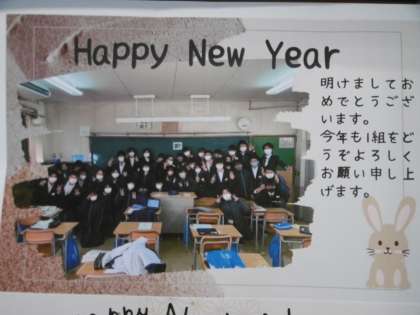 Happy New Year
明けましてお
めでとうござ
います。
今年も1組をど
うぞよろしく
お願い申し上
げます。